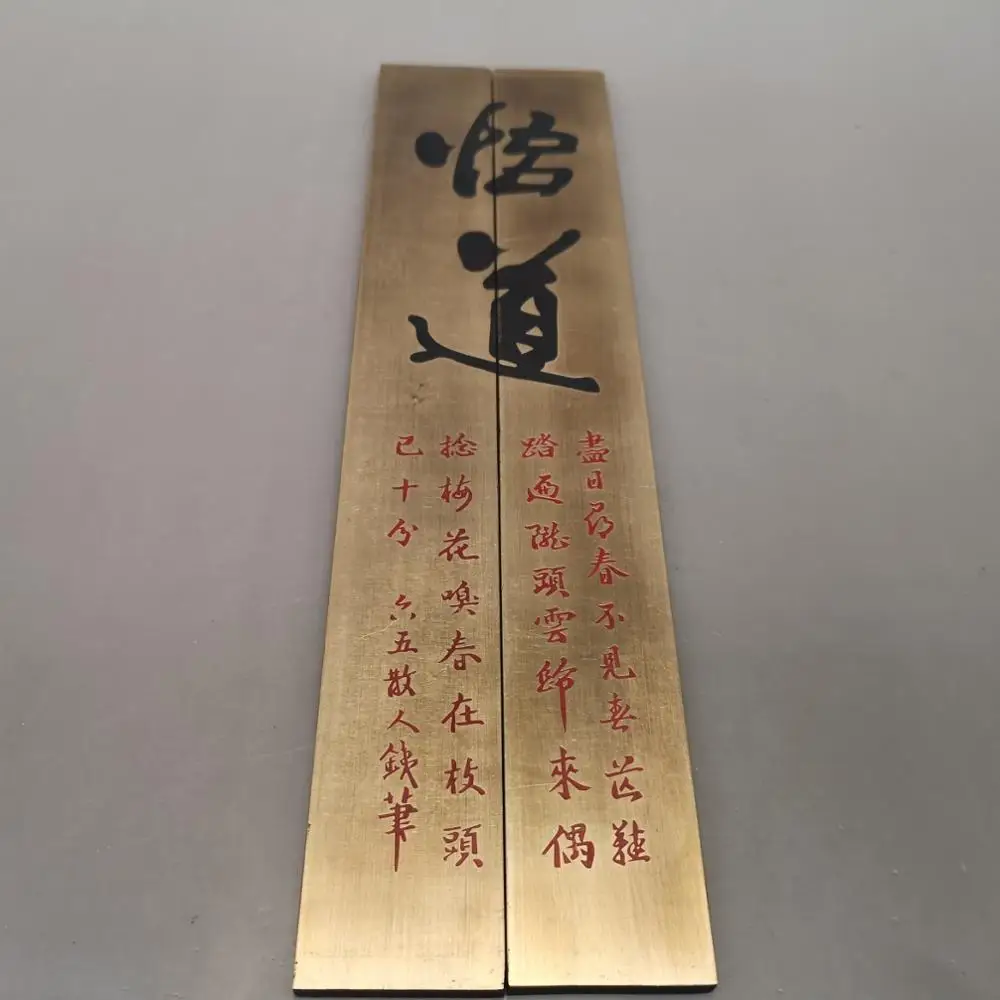 悟道
盡日尋春不見春芒鞋
踏遍隴頭雲歸來偶
捻梅花嗅春在枝頭
已十分 六五散人鐵筆